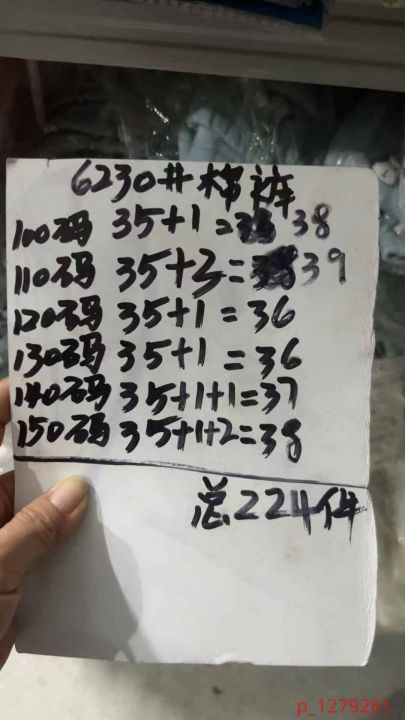 6230#棉裤
100码 35+1=38
110码 35+3=39
120码 35+1=36
130码 35+1=36
140码 35+1+1=37
150码 35+1+2=38
总224件
p_1279261